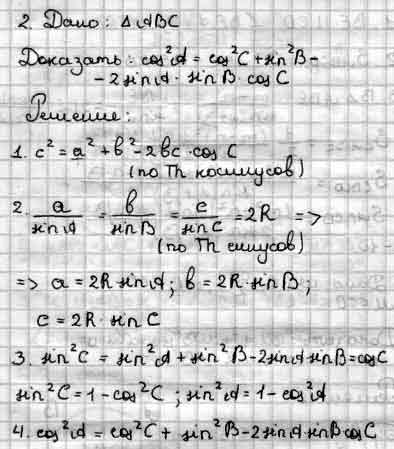 2. Дано: △ABC
Доказать: cos²A = cos²C + sin²B -
- 2 sin A · sin B · cos C
Решение:
1. c² = a² + b² - 2bc · cos C
(по Th косинусов)
2. a/sin A = b/sin B = c/sin C = 2R =>
(по Th синусов)
=> a = 2R sin A; b = 2R · sin B;
c = 2R · sin C
3. sin²C = sin²A + sin²B - 2 sin A sin B = cos C
sin²C = 1 - cos²C; sin²A = 1 - cos²A
4. cos²A = cos²C + sin²B - 2 sin A sin B cos C